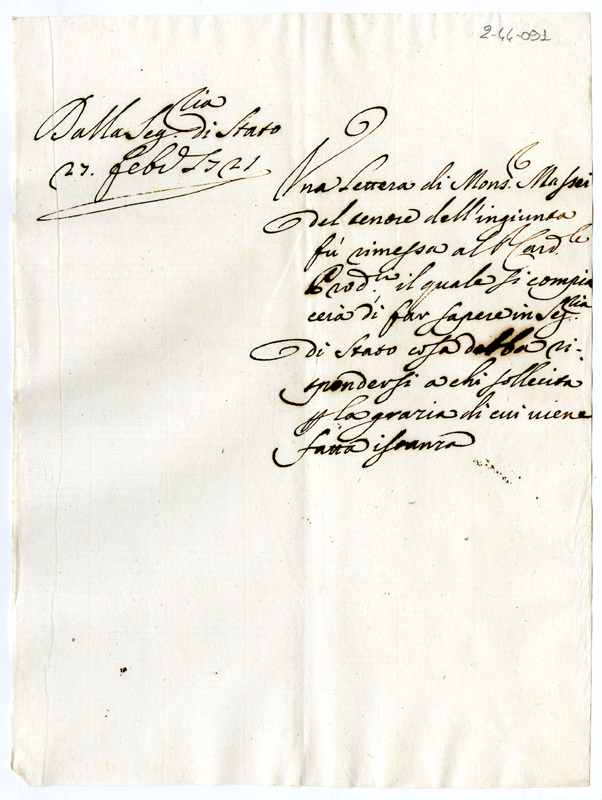 2-44-091
Dalla Seg.ria di Stato
27. Feb.o 1721
Una Lettera di Mons.r Massei
del tenore dell'ingiunta
fù rimessa al Card.le
Prod.rio il quale si compia
cerà di far sapere in Seg.ria
di Stato cosa debba ri-
spondersi a chi sollecita
la grazia di cui viene
fatta istanza